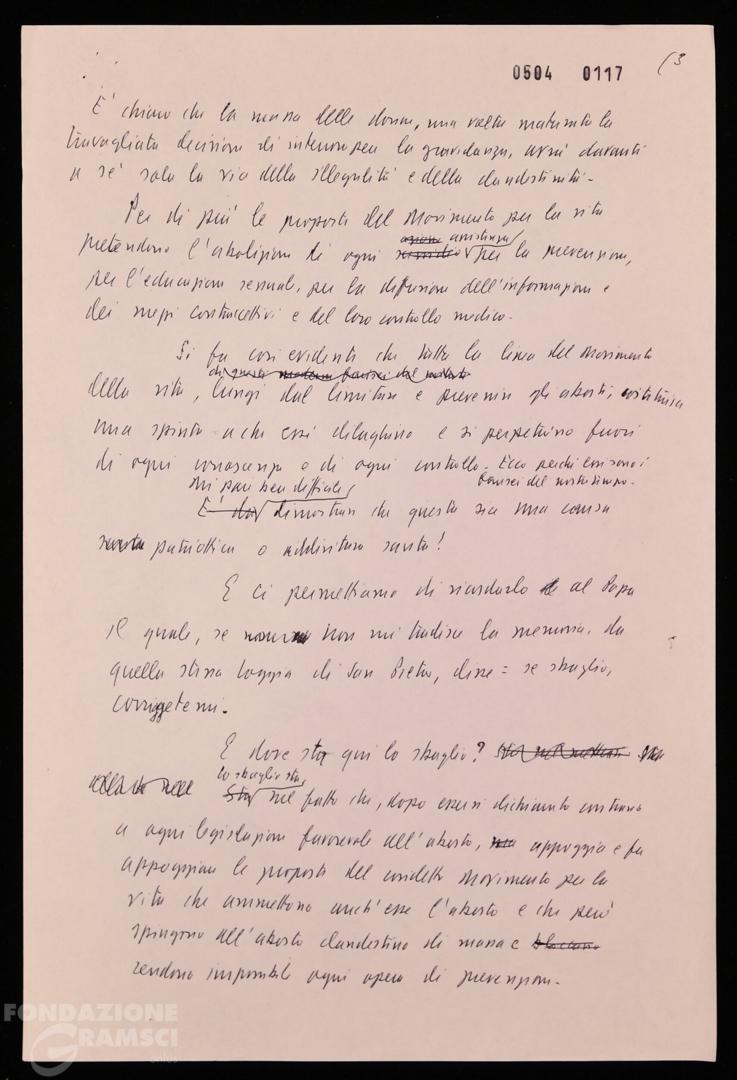 0504 0117 (3
E' chiaro che la massa delle donne, una volta maturata la
travagliata decisione di interrompere la gravidanza, avrà davanti
a sé solo la via della illegalità e della clandestinità -
Per di più le proposte del Movimento per la vita
azione assistenza
pretendono l'abolizione di ogni sussidio per la prevenzione,
per l'educazione sessuale, per la diffusione dell'informazione e
dei mezzi contraccettivi e del loro controllo medico -
Si fa così evidente che tutta la linea del Movimento
di questi moderni farisei del
della vita, lungi dal limitare e prevenire gli aborti, costituisce
una spinta a che essi dilaghino e si perpetuino fuori
di ogni conoscenza e di ogni controllo. Ecco perché essi sono i
farisei del nostro tempo -
Mi pare ben difficile
E' dimostrare che questa sia una causa
patriottica o addirittura santa!
E ci permettiamo di ricordarlo al Papa
il quale, se non mi tradisce la memoria, da
quella stessa loggia di San Pietro, disse = se sbaglio,
correggetemi -
E dove sta qui lo sbaglio?
lo sbaglio sta
Sta nel fatto che, dopo essersi dichiarato contrario
a ogni legislazione favorevole all'aborto, ma appoggia e fa
appoggiare le proposte del cosidetto Movimento per la
vita che ammettono anch'esse l'aborto e che però
spingono all'aborto clandestino di massa e bloccano
rendono impossibile ogni opera di prevenzione -
FONDAZIONE
GRAMSCI
onlus